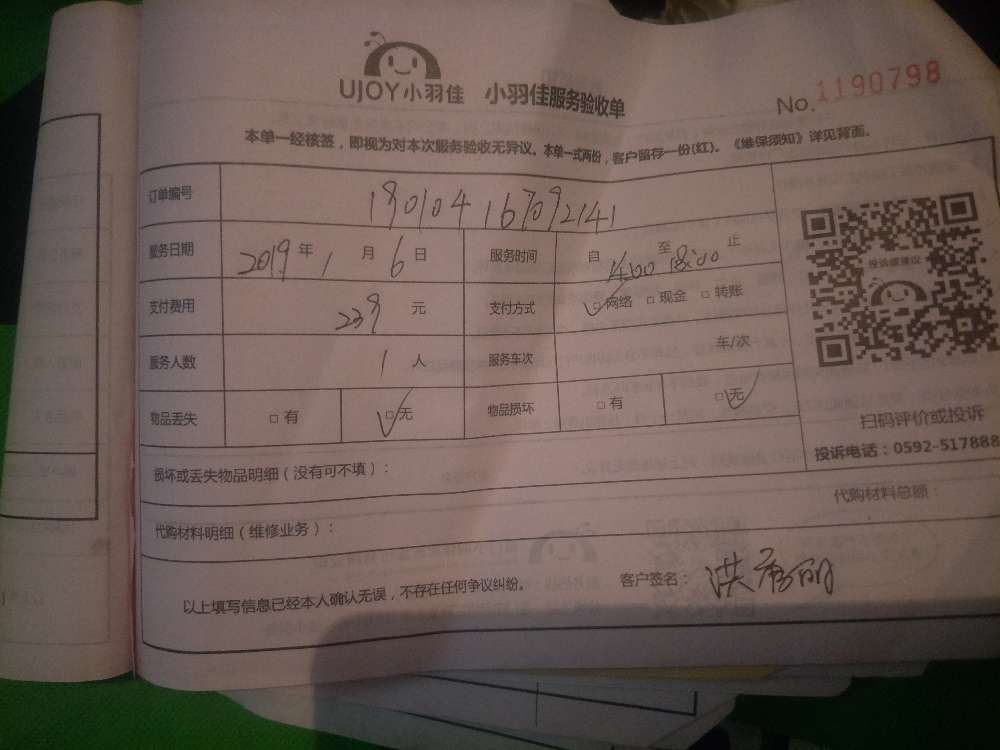 UJOY小羽佳 小羽佳服务验收单
No.1190798
本单一经核签，即视为对本次服务验收无异议。本单一式两份，客户留存一份(红)。《维保须知》详见背面。
订单编号 190104167092141
服务日期 2019年1月6日 服务时间 自14:00至18:00止
支付费用 239元 支付方式 □网络 □现金 □转账
服务人数 1人 服务车次 车/次
物品丢失 □有 □无 物品损坏 □有 □无
投诉或建议
扫码评价或投诉
投诉电话：0592-517888
损坏或丢失物品明细（没有可不填）：
代购材料明细（维修业务）： 代购材料总额：
以上填写信息已经本人确认无误，不存在任何争议纠纷。 客户签名：洪丽